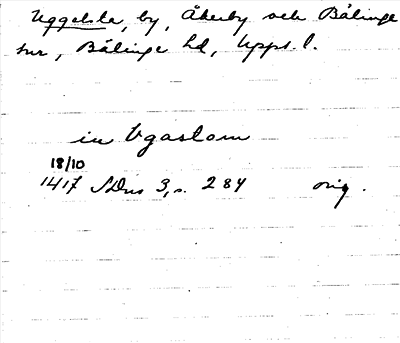 Uggelsta, by, Åkerby och Bälinge
snr, Bälinge hd, Upps. l.
in Vgaslom
18/10
1417 SDns 3, s. 284 orig.